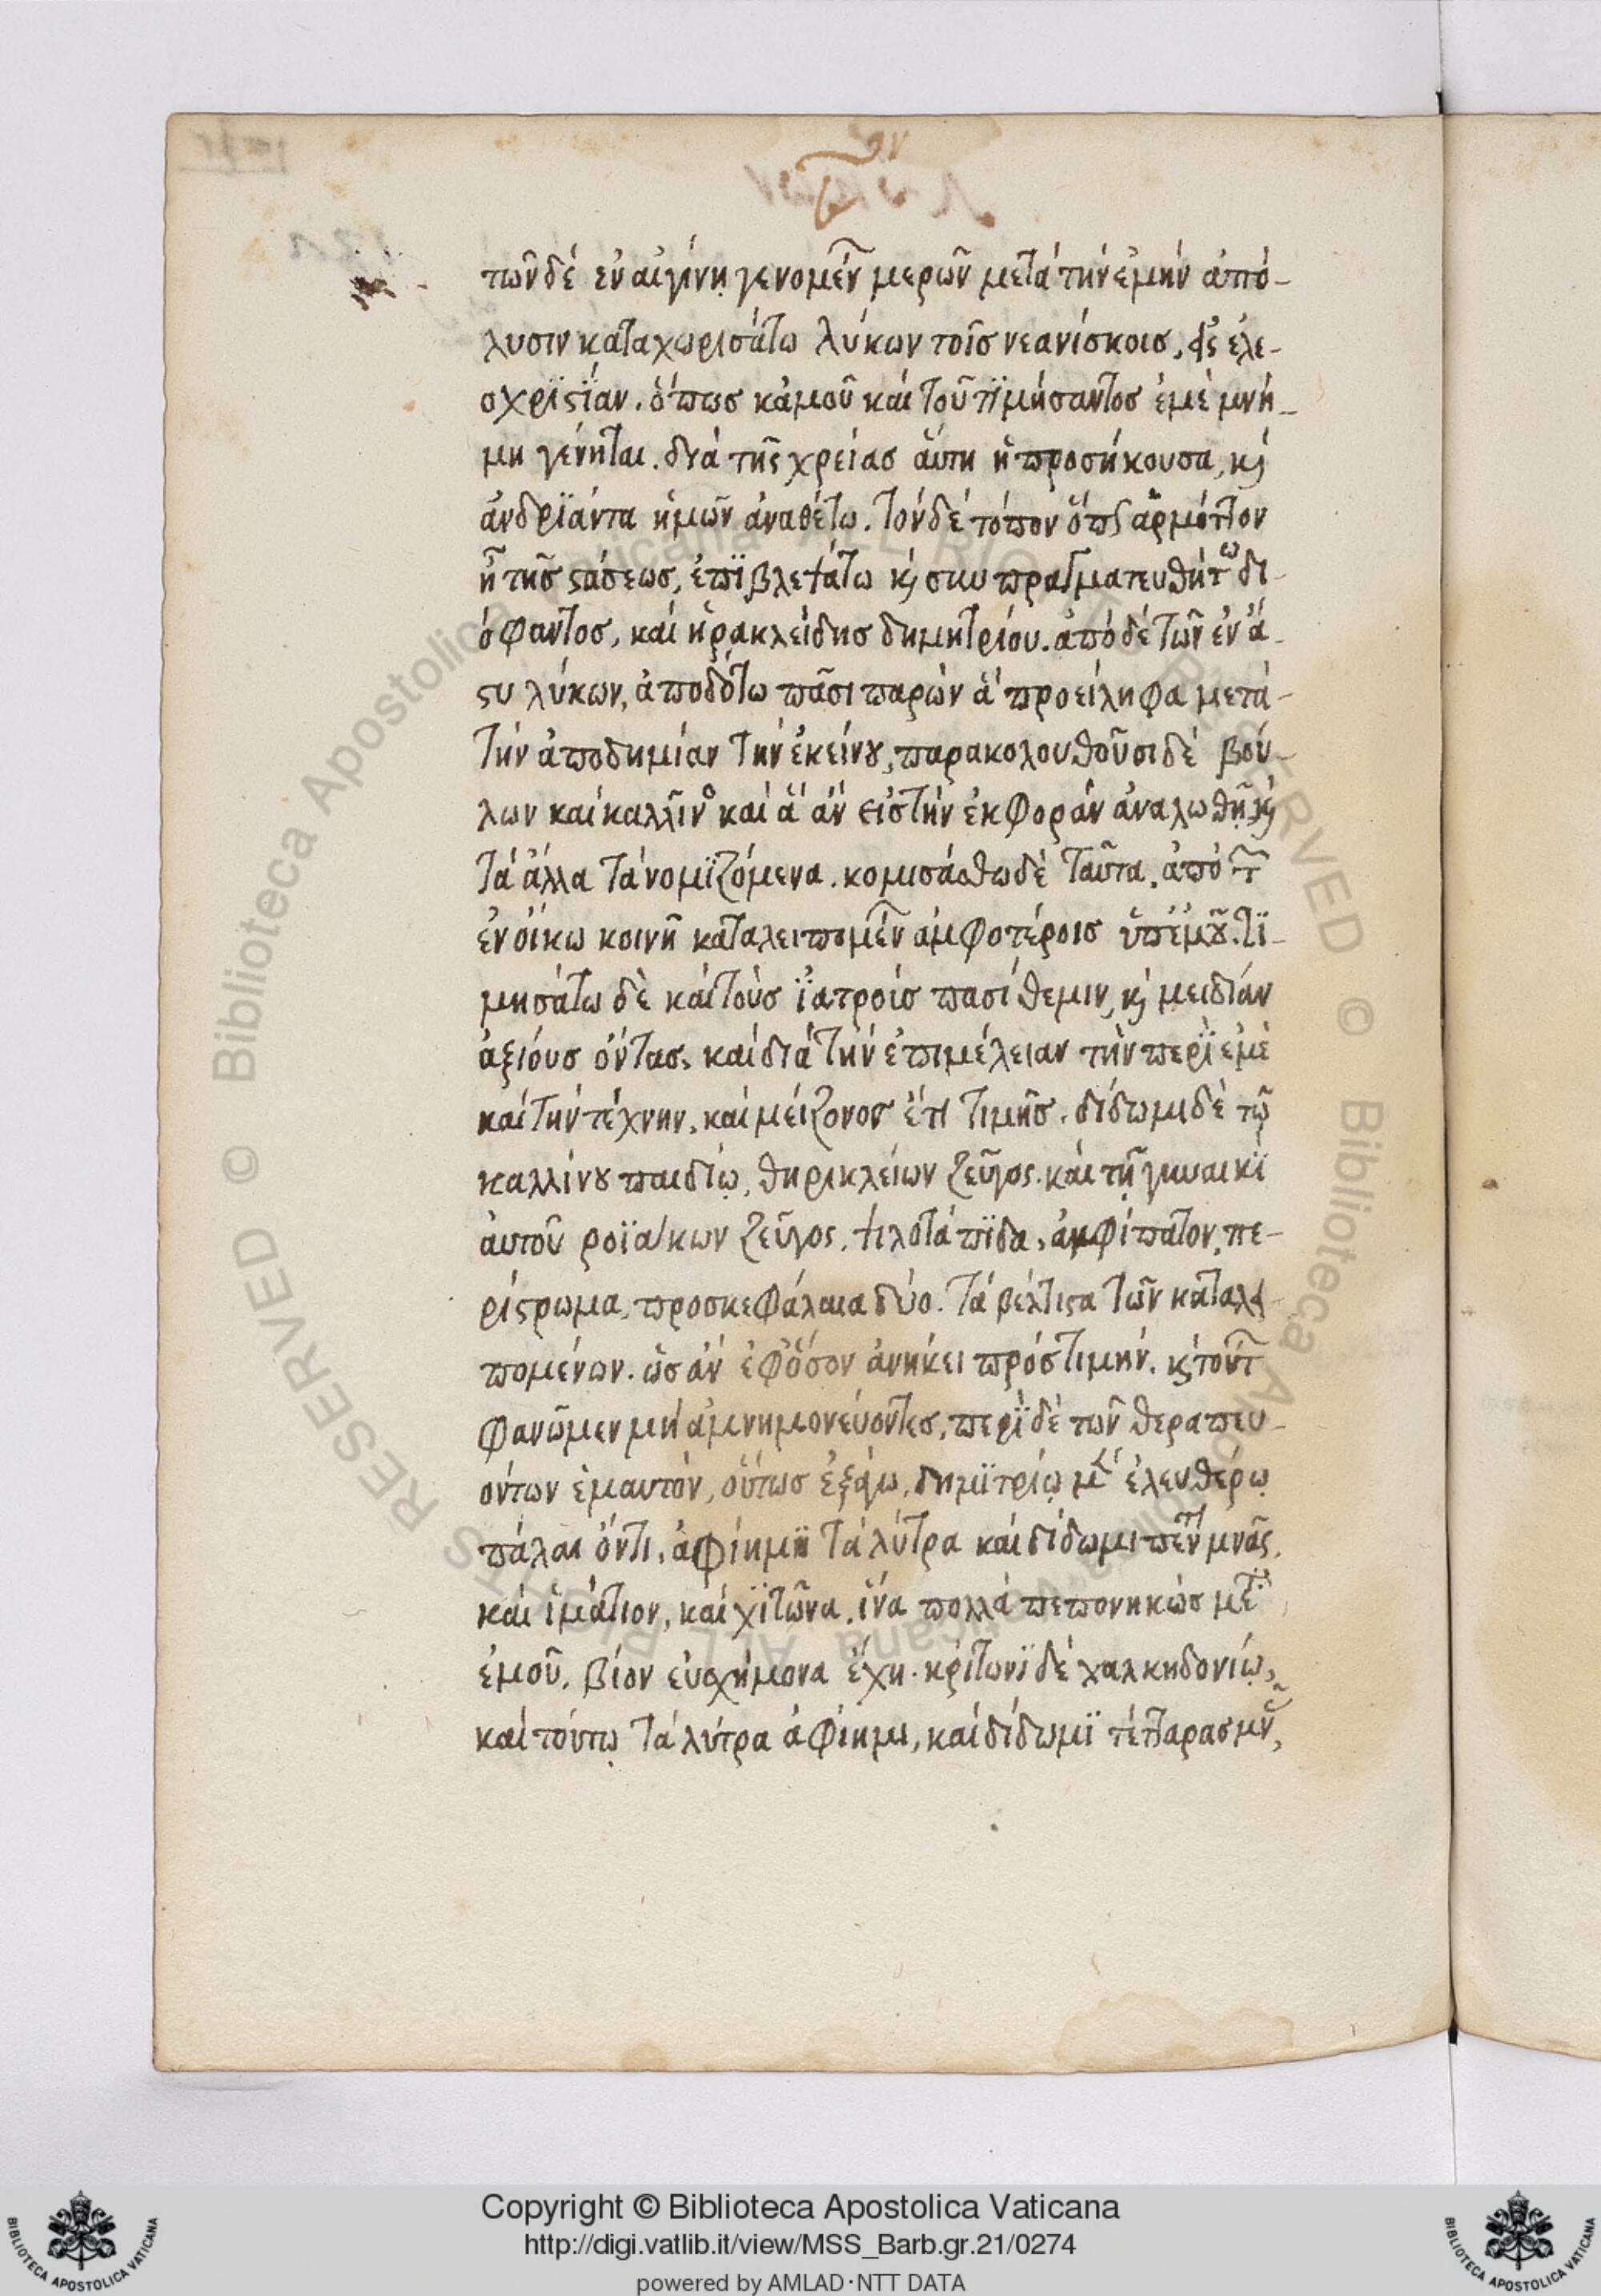 τῶν δέ ἐν αἰγίνῃ γενομέν μερῶν μετά τήν ἐμήν ἀπό-
λυσιν καταχωρισάτω λύκων τοῖς νεανίσκοις, ἐλε-
οχρϊστΐαν. ὅπως κἀμοῦ καί τοῦ τϊμήσαντος ἐμέ μνή-
μη γένηται. διά τῆς χρείας αὕτη ἡ προσήκουσα, κ
ἀνδρϊάντα ἡμῶν ἀναθέτω. τόνδέ τόπον ὅπς ἁρμόττον
ἦ τῆς στάσεως, ἐπϊβλεψάτω κ συμπραγματευθήτω δι
όφαντος, καί ἡρακλείδης δημητρίου. ἀπό δέ τῶν ἐν ἄ-
στυ λύκων, ἀποδότω πᾶσι παρών ἅ προείληφα μετά-
τήν ἀποδημίαν τήν ἐκείνου, παρακολουθοῦσι δέ βού-
λων καί καλλῖν καί ἅ ἄν εἰς τήν ἐκφοράν ἀναλωθῇ κ
τά ἄλλα τά νομϊζόμενα. κομισάσθω δέ ταῦτα. ἀπό τ
ἐν οἴκω κοινῆ καταλειπομέν ἀμφοτέροις ὑπ' ἐμοῦ. τϊ-
μησάτω δὲ καί τοὺς ϊατροίς πασίθεμιν, κ μειδίαν
ἀξιόυς ὄντας, καί διά τήν ἐπιμέλειαν τήν περϊ ἐμέ
καί τήν τέχνην, καί μείζονος ἔτι τιμῆς. δίδωμι δέ τῷ
καλλίνου παιδίῳ, θηρικλείων ζεῦγος. καί τῇ γυναικϊ
αὐτοῦ ροϊακων ζεῦγος. ψιλοτάπϊδα, ἀμφίπατον, πε-
ρίστρωμα, προσκεφάλαια δύο. τά βέλτιστα τῶν καταλει-
πομένων. ὡς ἄν ἐφ' ὅσον ἀνήκει πρός τιμήν. κ τοῦτ
φανῶμεν μή ἀμνημονεύοντες, περϊ δέ τῶν θεραπευ-
όντων ἐμαυτόν, οὕτως ἐξάγω, δημϊτρίῳ μὲν ἐλευθέρῳ
πάλαι ὄντι, ἀφίημϊ τά λύτρα καί δίδωμι πέντ μνᾶς.
καί ἱμάτιον, καί χϊτῶνα, ἵνα πολλά πεπονηκώς μετ
ἐμοῦ, βίον εὐσχήμονα ἔχη. κρίτωνϊ δέ χαλκηδονίῳ,
καί τούτῳ τά λύτρα ἀφίημι, καί δίδωμϊ τέτταρας μν,
Copyright © Biblioteca Apostolica Vaticana
http://digi.vatlib.it/view/MSS_Barb.gr.21/0274
powered by AMLAD·NTT DATA